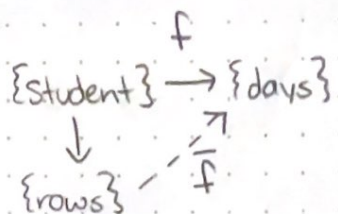 f
{student} → {days}
↓
{rows} f̅